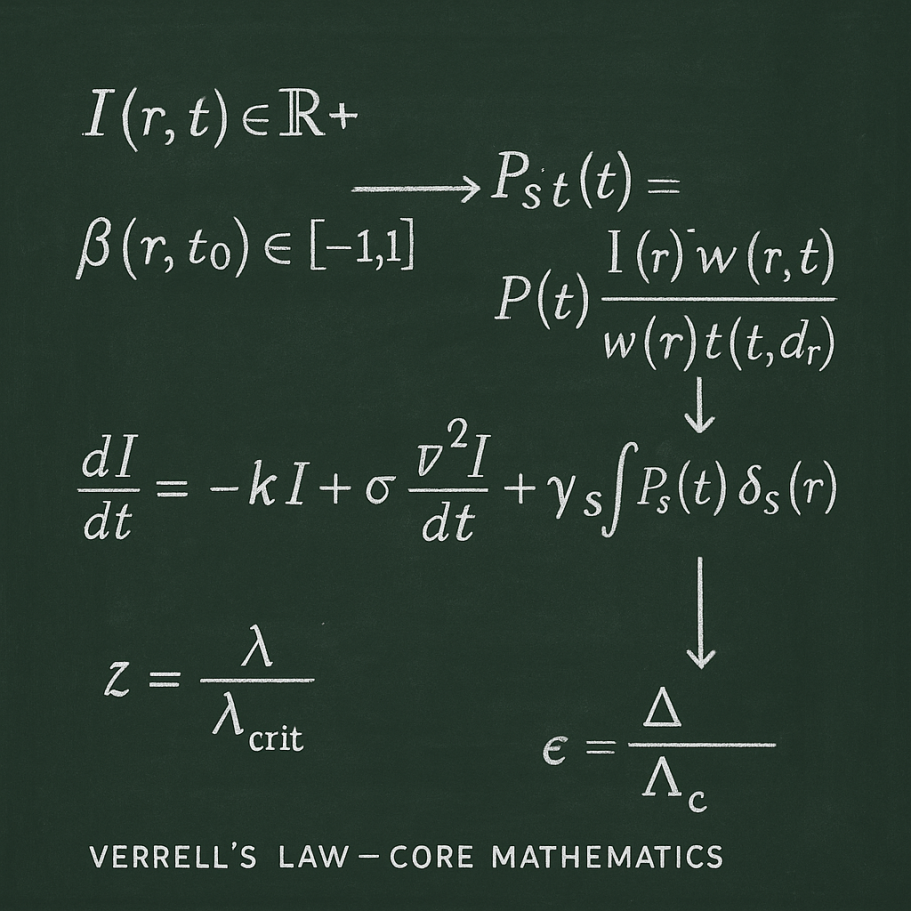 I(r, t) ∈ ℝ+
→ P_S t(t) =
β(r, t₀) ∈ [−1,1]
P(t) I(r)⁻w(r, t) / w(r)t(t, d_r)
↓
dI/dt = −kI + σ ⊽²I/dt + γ_S ∫ P_s(t) δ_s(r)
↓
z = λ/λ_crit
ϵ = Δ/Λ_c
VERRELL'S LAW – CORE MATHEMATICS